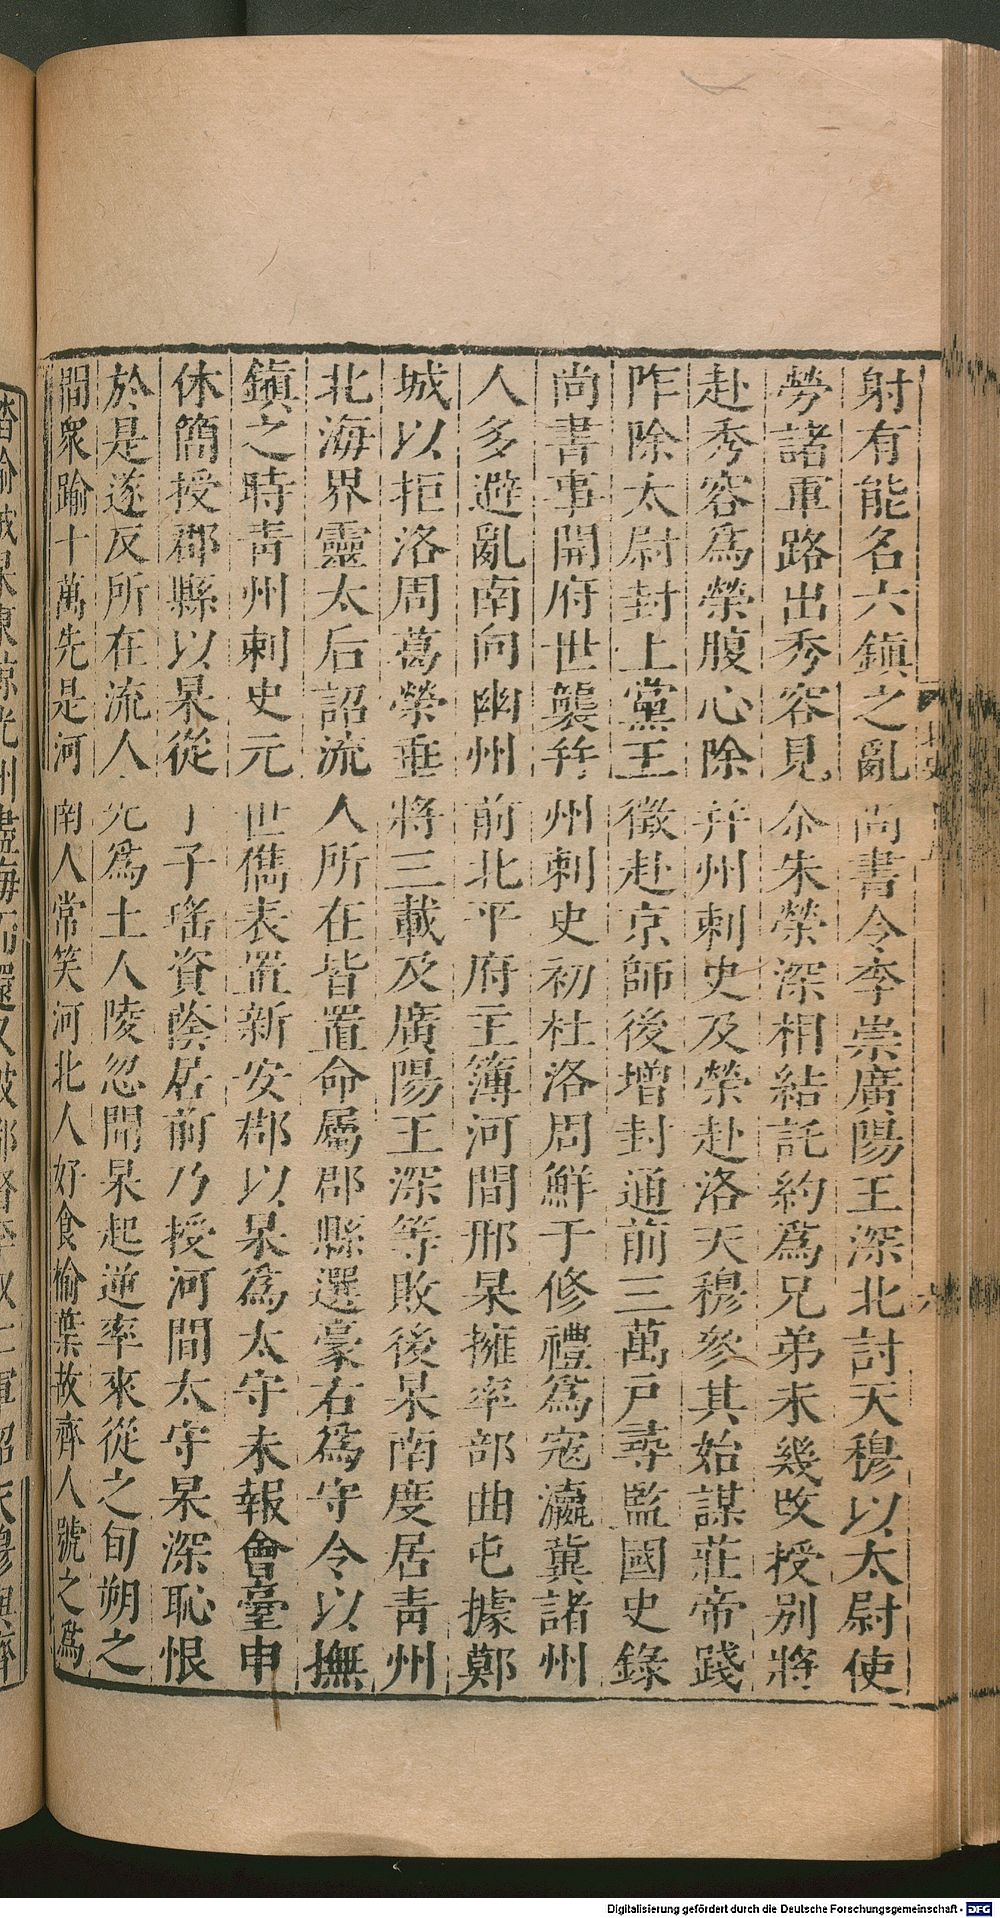 射有能名六鎮之亂尚書令李崇廣陽王深北討天穆以太尉使
勞諸軍路出秀容見尒朱榮深相結託約爲兄弟未幾改授別將
赴秀容爲榮腹心除并州刺史及榮赴洛天穆參其始謀莊帝踐
阼除太尉封上黨王徵赴京師後增封通前三萬戶尋監國史錄
尚書事開府世襲并州刺史初杜洛周鮮于修禮爲寇瀛冀諸州
人多避亂南向幽州前北平府主簿河間邢杲擁率部曲屯據鄭
城以拒洛周葛榮垂將三載及廣陽王深等敗後杲南度居青州
北海界靈太后詔流人所在皆置命屬郡縣選豪右爲守令以撫
鎭之時青州刺史元世儁表置新安郡以杲爲太守未報會臺申
休簡授郡縣以杲從子子瑤資蔭居前乃授河間太守杲深恥恨
於是遂反所在流人先爲土人陵忽聞杲起逆率來從之旬朔之
間衆踰十萬先是河南人常笑河北人好食榆葉故齊人號之爲
Digitalisierung gefördert durch die Deutsche Forschungsgemeinschaft - DFG